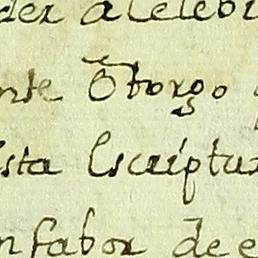 der acelebr
nte Otorgo
sta Escriptur
nfabor de e